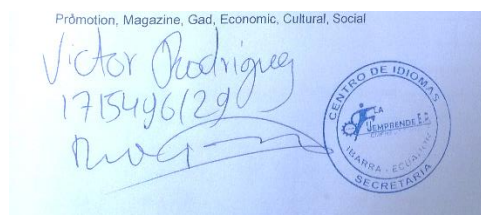 Promotion, Magazine, Gad, Economic, Cultural, Social
Victor Rodriguez
CENTRO DE IDIOMAS
LA
UEMPRENDE E.P.
IBARRA - ECUADOR
SECRETARÍA